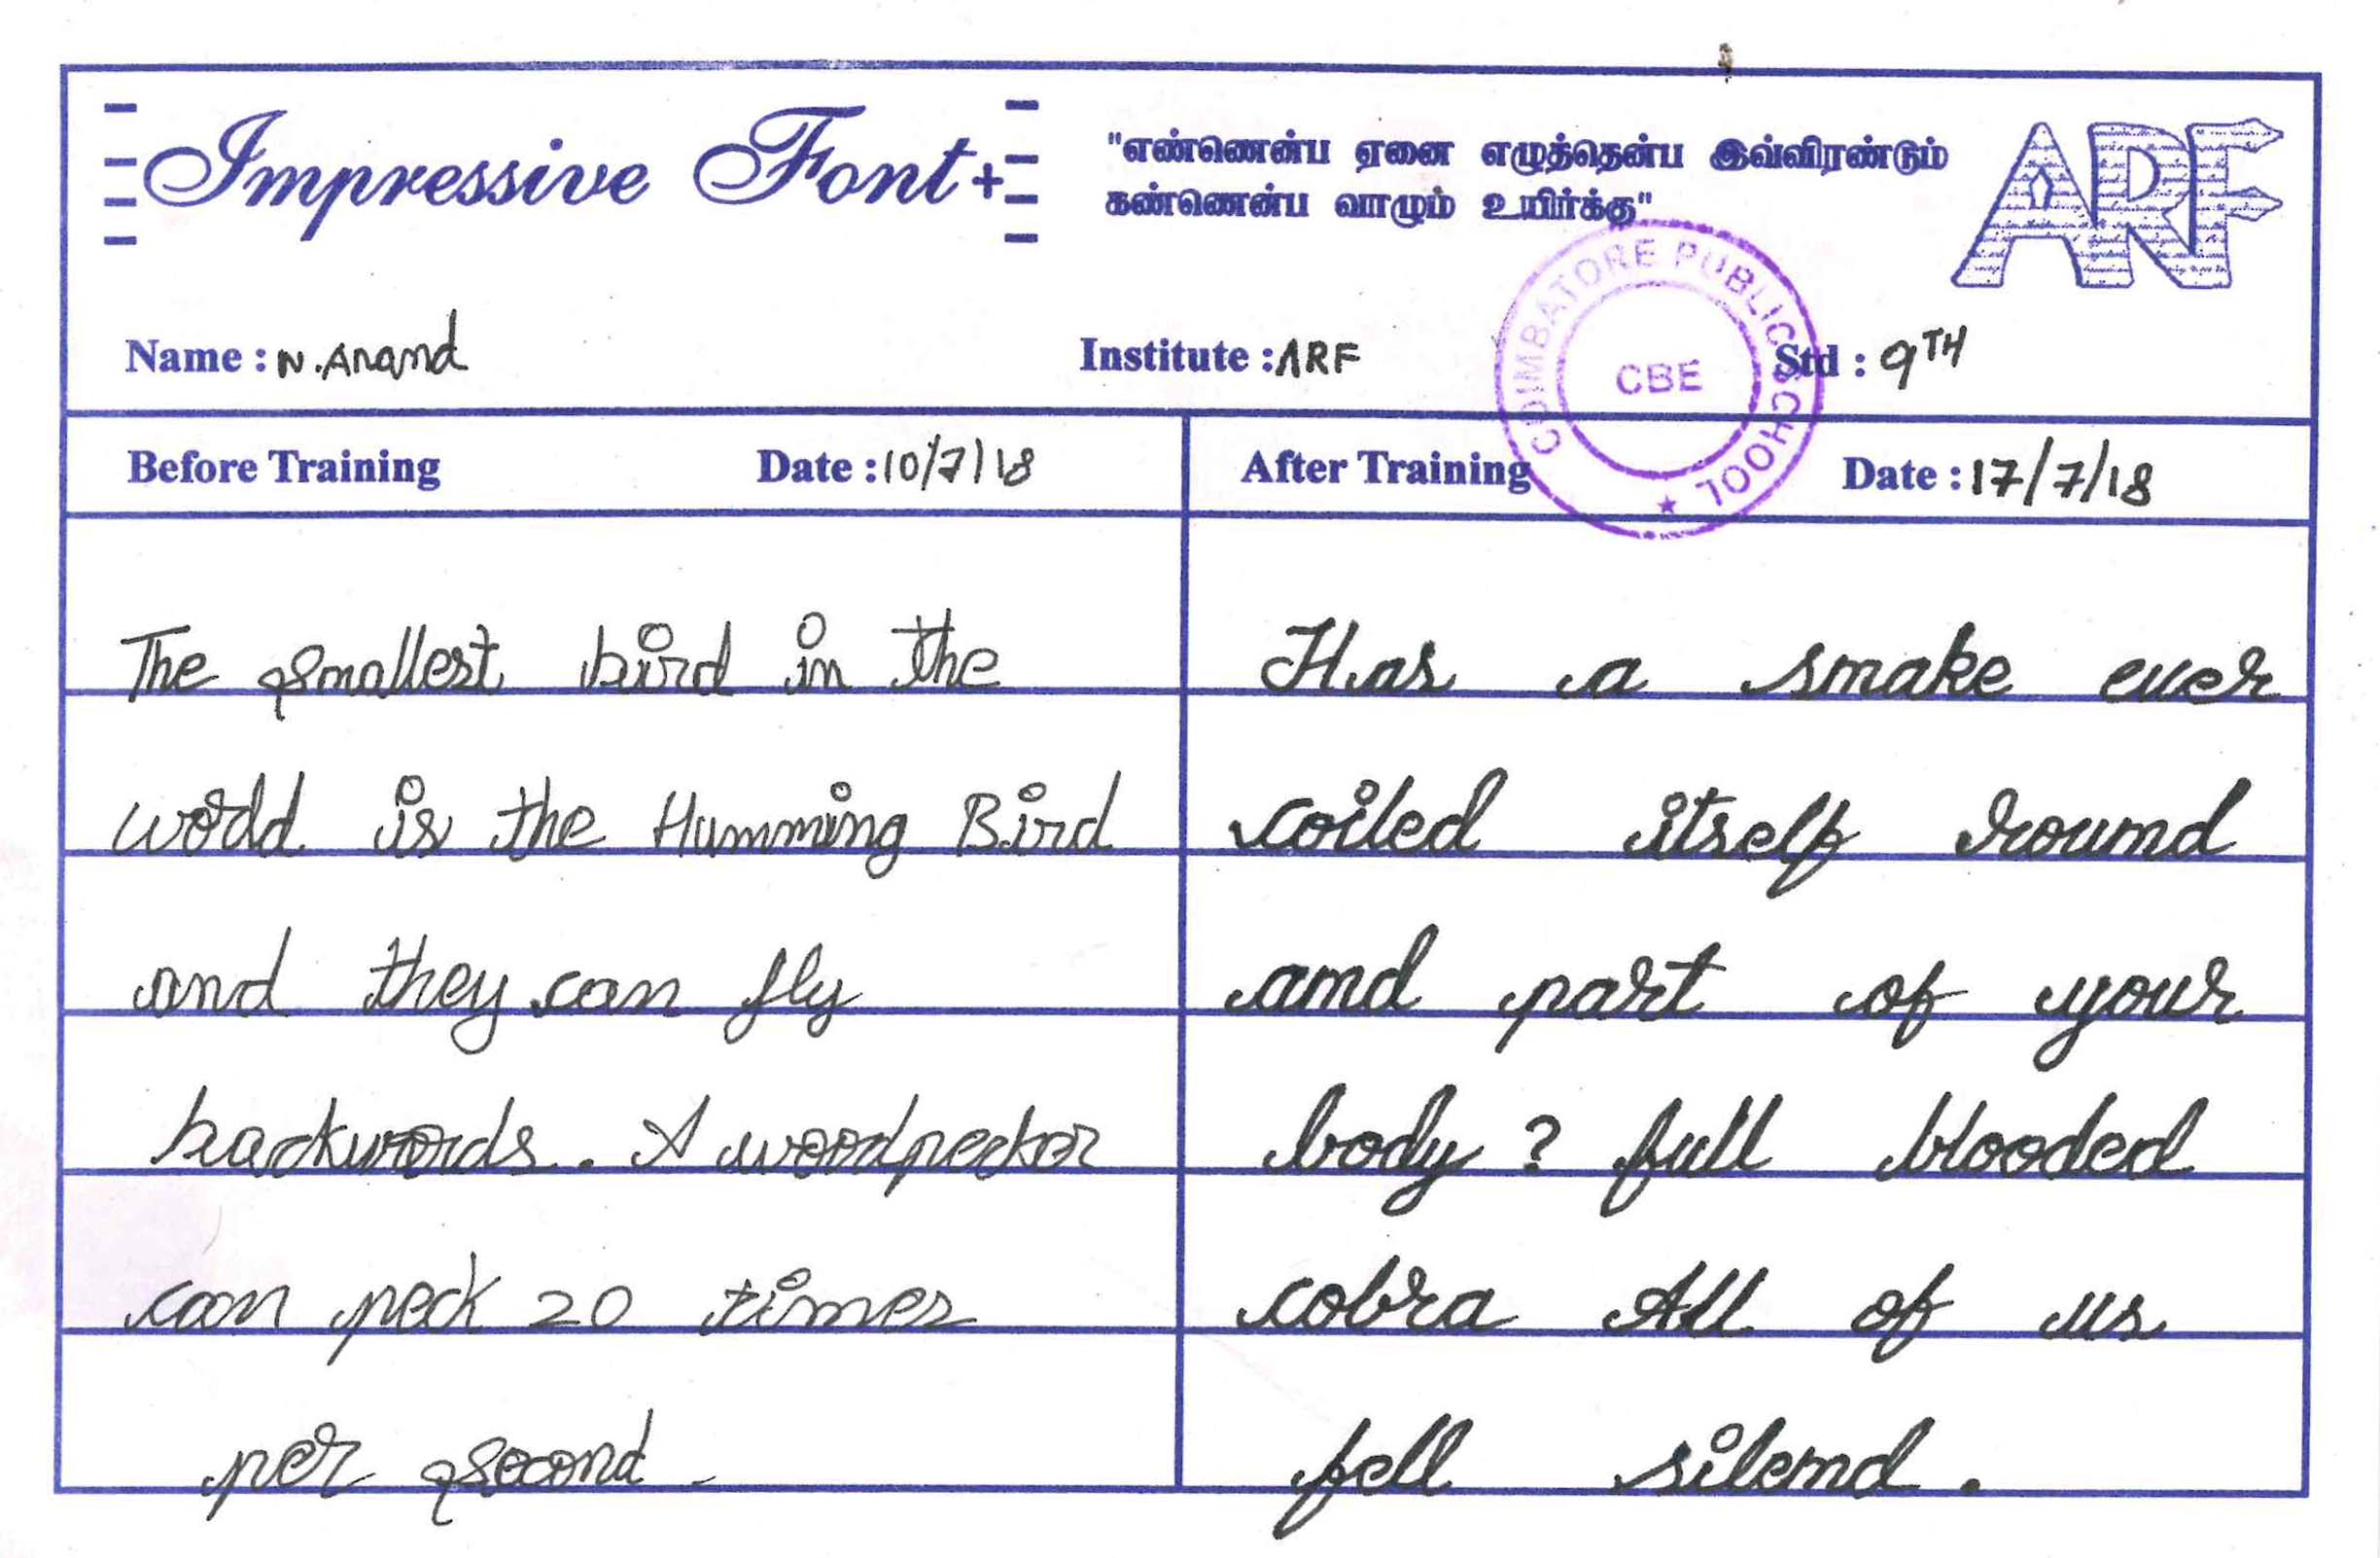 Impressive Font+
"எண்ணென்ப ஏனை எழுத்தென்ப இவ்விரண்டும்
கண்ணென்ப வாழும் உயிர்க்கு"
ARF
COIMBATORE PUBLIC SCHOOL ★
CBE
Name : N. Anand Institute : ARF Std : 9TH
Before Training Date : 10/7/18
The smallest bird in the
world is the Humming Bird
and they can fly
backwords. A woodpecker
can peck 20 times
per second.
After Training Date : 17/7/18
Has a smake ever
coiled itself round
amd part of your
body ? full blooded
cobra All of us
fell silemd.